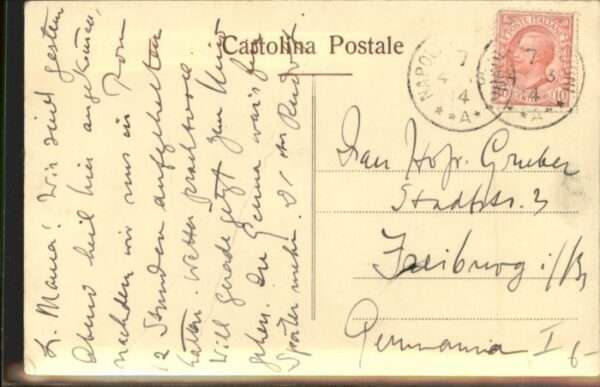 Cartolina Postale
NAPOLI
7
4 3
14
* * A * *
POSTE ITALIANE
10
L. Mama! Wir sind gestern
Abend heil hier angekommen,
nachdem wir uns in Rom
12 Stunden aufgehalten
hatten. Wetter prachtvoll.
Will gerade jetzt zum
gehen. In Genua war's
Später mehr. Dr
Frau Hofr. Gruber
Stadtstr. 3
Freiburg i/B
Germania I